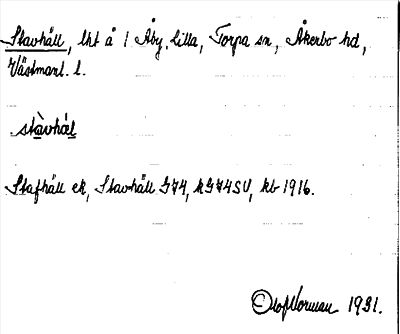 Stavhäll, lht å 1 Åby, Lilla, Torpa sn, Åkerbo hd,
Västmanl. l.
stàvhäl
Stafhäll ek, Stavhäll G74, kG74SV, kb 1916.
Olof Norman 1931.